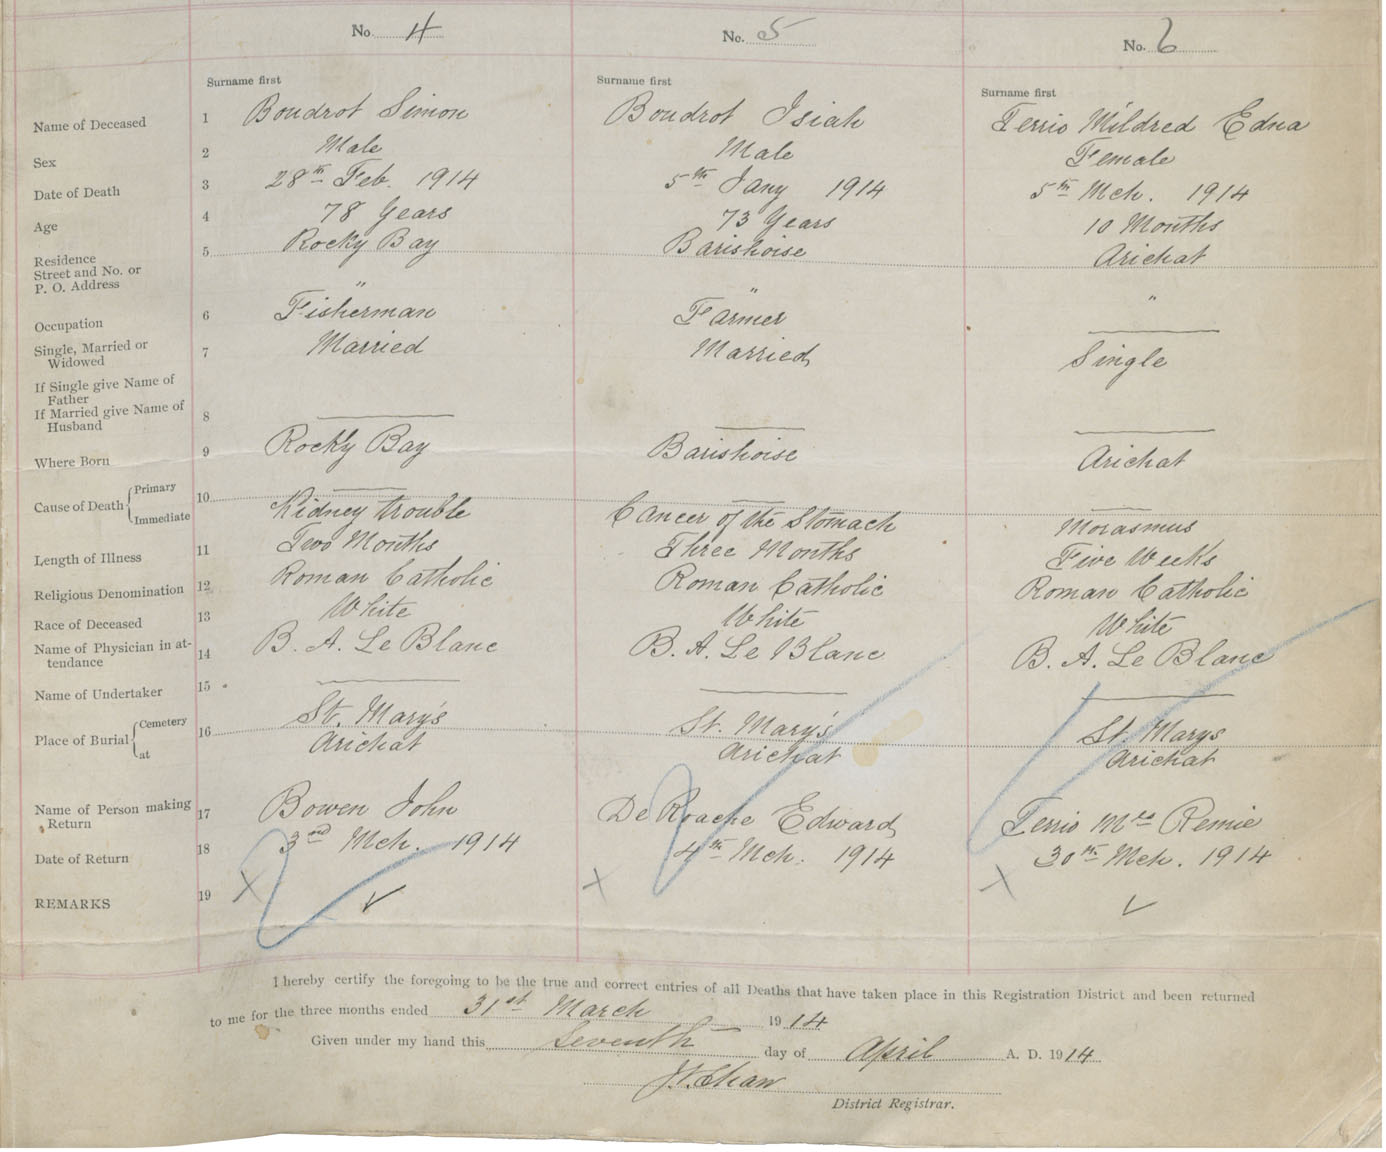 No. 4 No. 5 No. 6
Surname first Surname first Surname first
Name of Deceased 1 Boudrot Simon Boudrot Isiah Terrio Mildred Edna
Sex 2 Male Male Female
Date of Death 3 28th Feb. 1914 5th Jany 1914 5th Mch. 1914
Age 4 78 Years 73 Years 10 Months
Residence 5 Rocky Bay Barishoise Arichat
Street and No. or
P. O. Address " " "
Occupation 6 Fisherman Farmer
Single, Married or
Widowed 7 Married Married Single
If Single give Name of
Father
If Married give Name of
Husband 8
Where Born 9 Rocky Bay Barishoise Arichat
Cause of Death { Primary 10
Immediate Kidney trouble Cancer of the Stomach Morasmus
Length of Illness 11 Two Months Three Months Five Weeks
Religious Denomination 12 Roman Catholic Roman Catholic Roman Catholic
Race of Deceased 13 White White White
Name of Physician in at-
tendance 14 B. A. Le Blanc B. A. Le Blanc B. A. Le Blanc
Name of Undertaker 15
Place of Burial { Cemetery 16 St. Mary's St. Mary's St. Marys
at Arichat Arichat Arichat
Name of Person making
Return 17 Bowen John De Roache Edward Terrio Mrs Remie
Date of Return 18 3rd Mch. 1914 4th Mch. 1914 30th Mch. 1914
REMARKS 19
I hereby certify the foregoing to be the true and correct entries of all Deaths that have taken place in this Registration District and been returned
to me for the three months ended 31st March 1914
Given under my hand this Seventh day of April A. D. 1914
District Registrar.